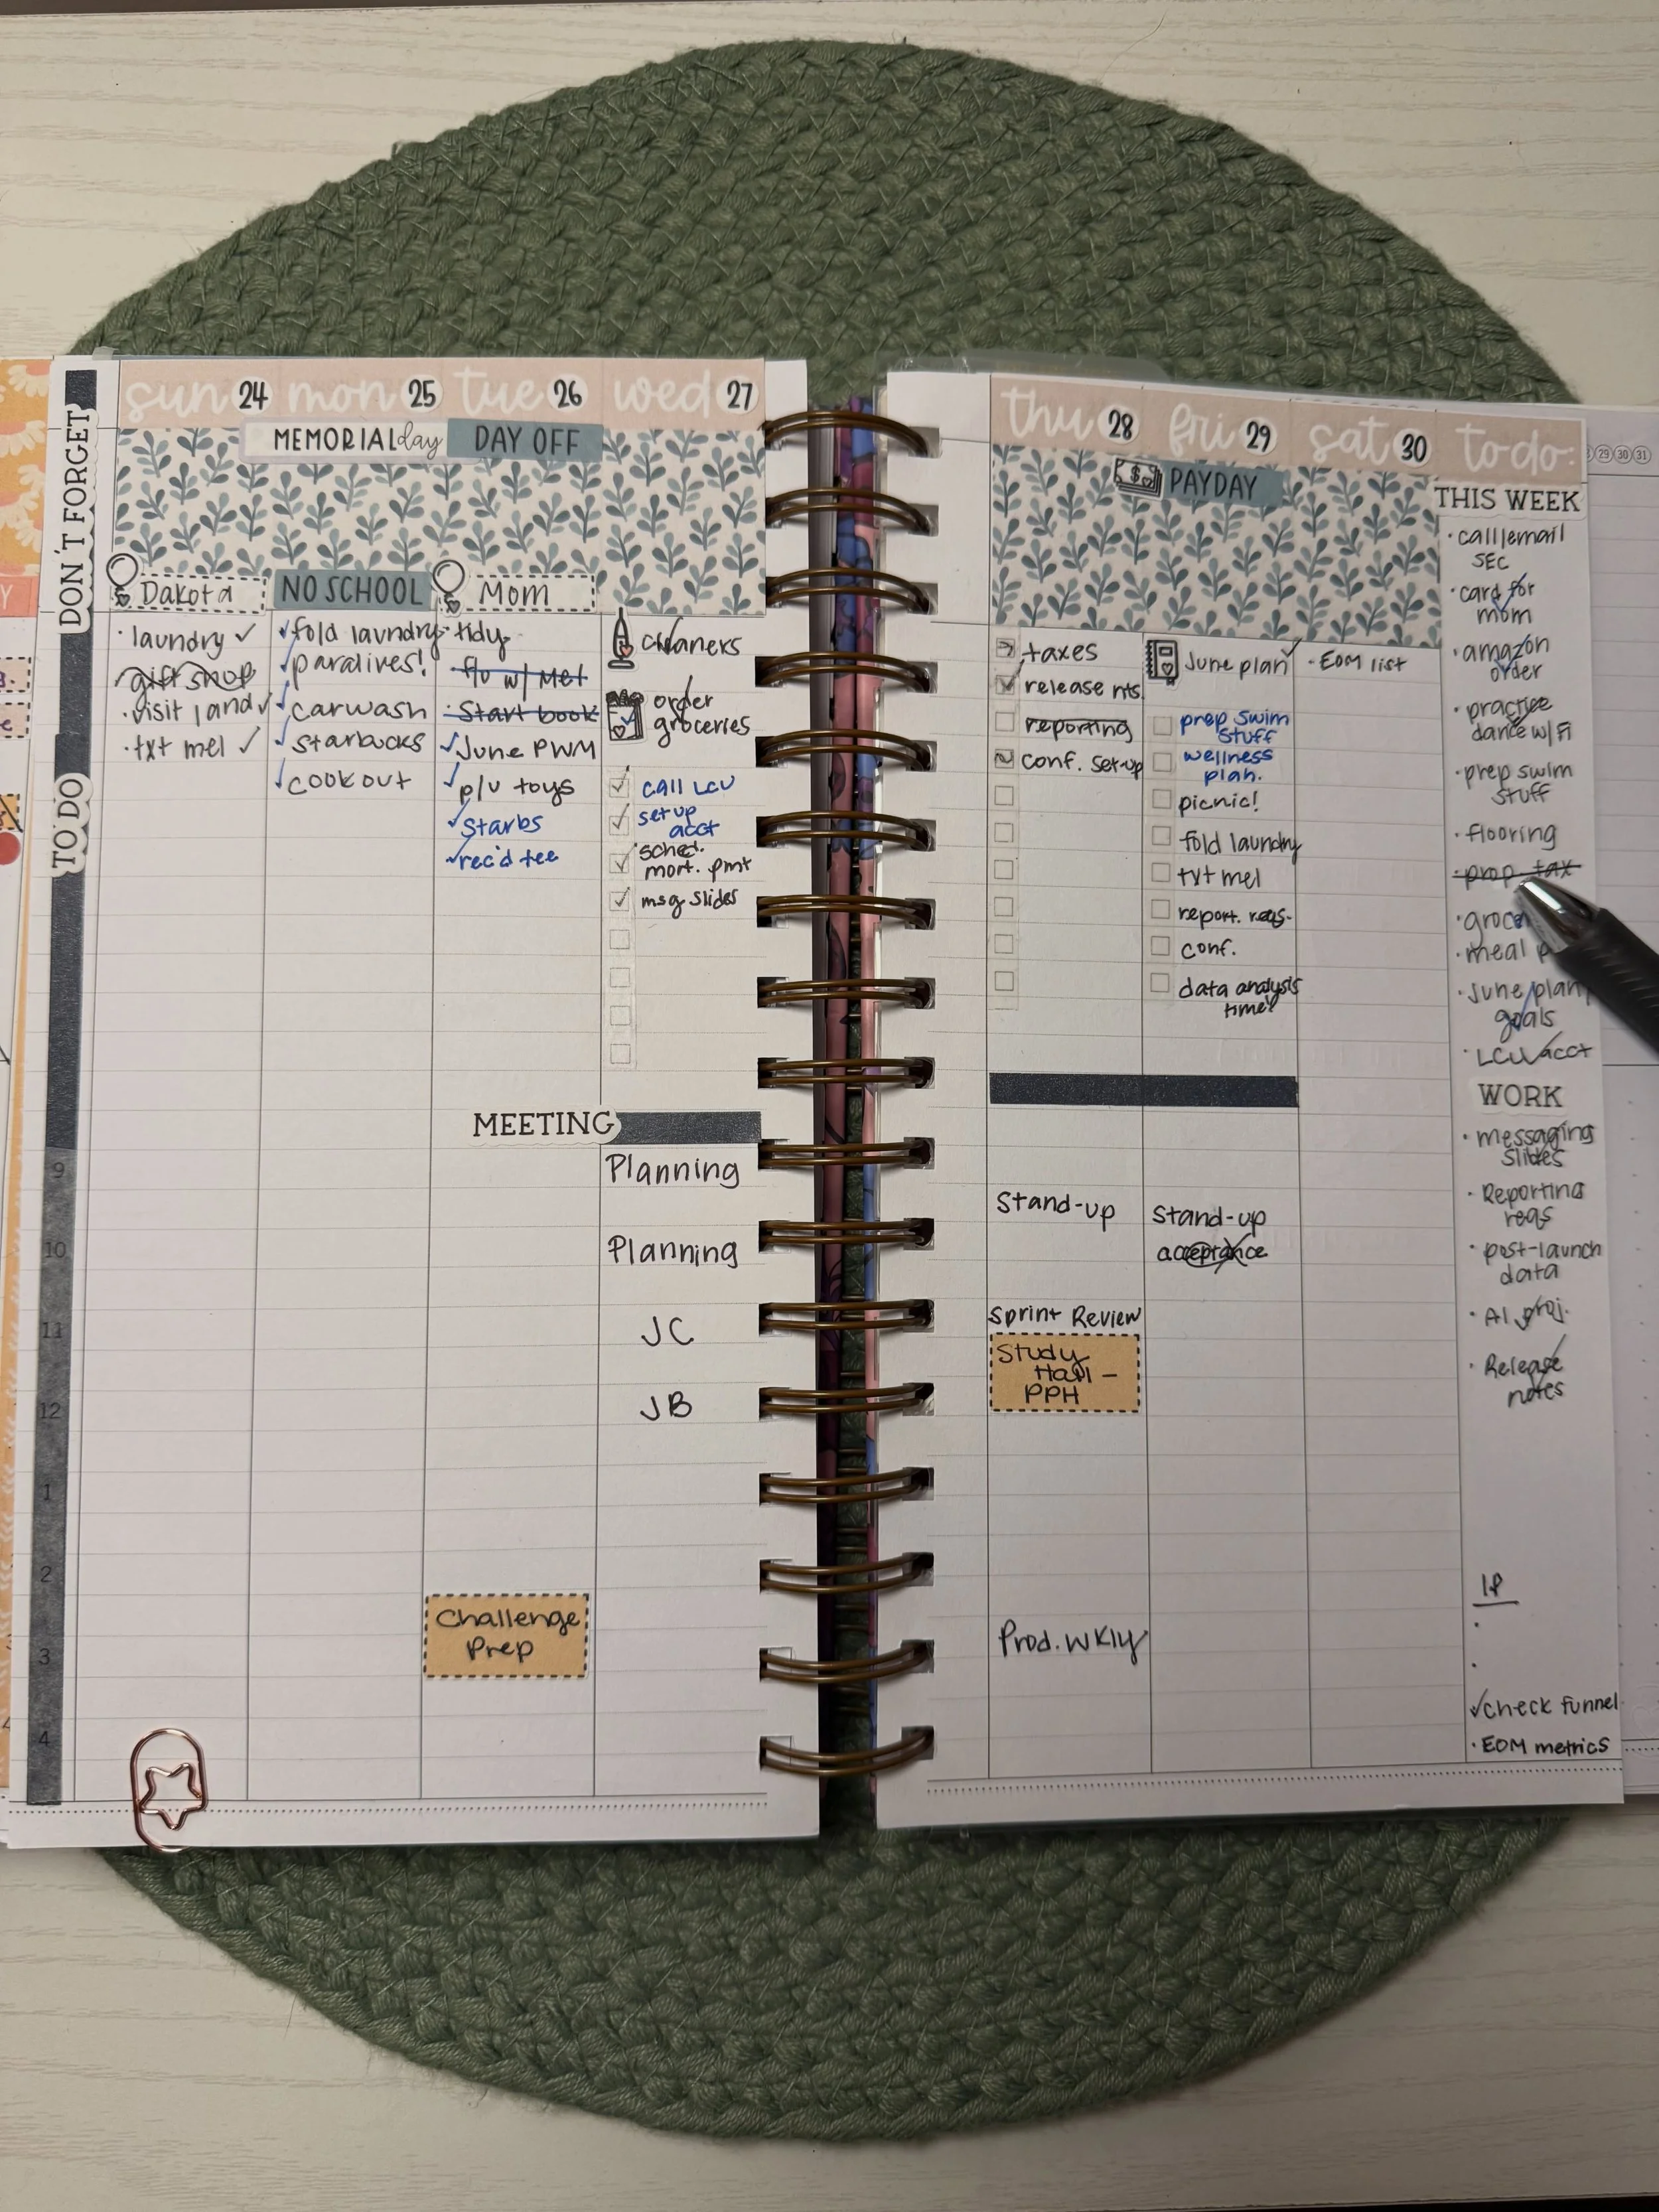 DON'T FORGET
TO DO
sun 24
mon 25
tue 26
wed 27
MEMORIAL day
DAY OFF
Dakota
NO SCHOOL
Mom
· laundry ✓
gift shop
· visit land ✓
· txt mel ✓
✓ fold laundry
✓ paralives!
✓ carwash
✓ starbucks
✓ cook out
· tidy
f/u w/ Mel
· Start book
✓ June PWM
✓ p/u toys
✓ Starbs
✓ rec'd tee
cleaners
order
groceries
call LCU
set up
acct
sched.
mort. pmt
msg slides
MEETING
9
Planning
10
Planning
11
JC
12
JB
1
2
Challenge
Prep
3
4
thu 28
fri 29
sat 30
to do:
29 30 31
PAYDAY
taxes
release nts.
reporting
conf. set-up
June plan
prep swim
stuff
wellness
plan.
picnic!
fold laundry
txt mel
report. reqs.
conf.
data analysis
time?
· EOM list
Stand-up
Sprint Review
Study
Hall -
PPH
Prod. Wkly
Stand-up
acceptance
THIS WEEK
· call/email
SEC
· card for
mom
· amazon
order
· practice
dance w/ Fi
· prep swim
stuff
· flooring
· prop. tax
· meal
· June plan/
goals
· LCU acct
WORK
· messaging
slides
· Reporting
reqs
· post-launch
data
· AI proj.
· Release
notes
IP
·
·
✓ check funnel
· EOM metrics